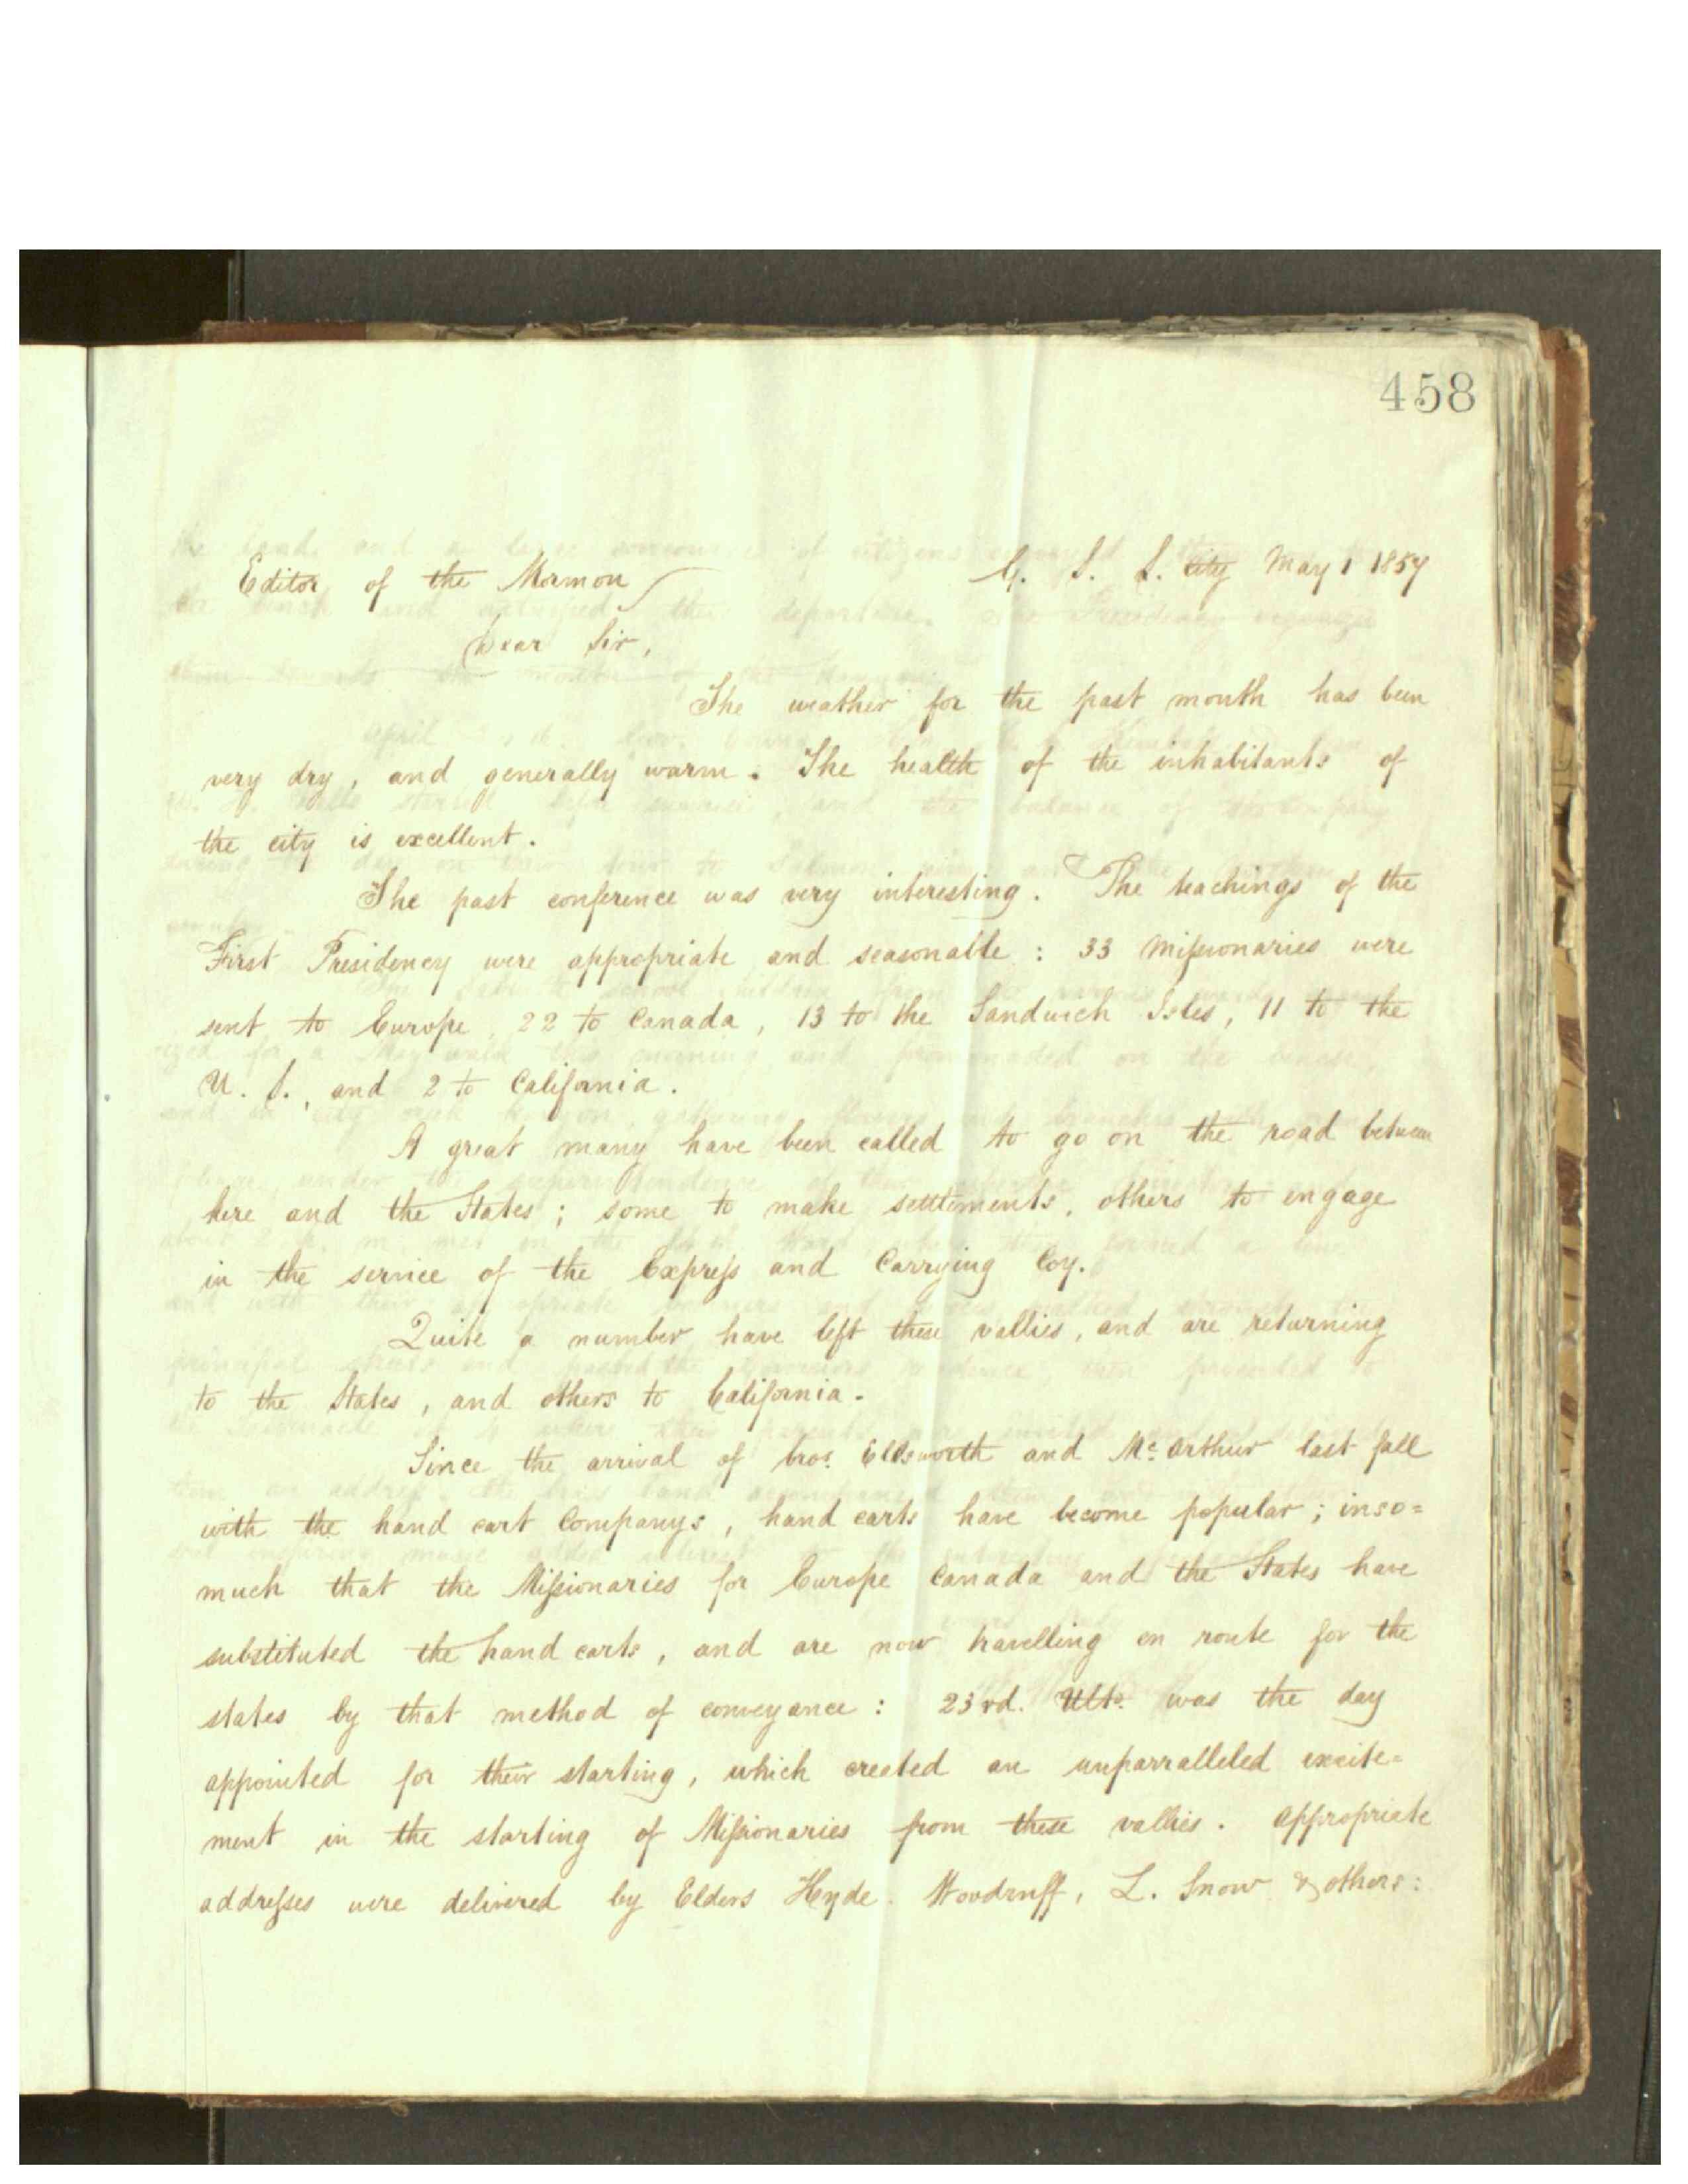 458
G. S. L. City May 1 1857
Editor of the Mormon
Dear Sir,
The weather for the past month has been
very dry, and generally warm. The health of the inhabitants of
the city is excellent.
The past conference was very interesting. The teachings of the
First Presidency were appropriate and seasonable: 33 Missionaries were
sent to Europe, 22 to Canada, 13 to the Sandwich Isles, 11 to the
U. S., and 2 to California.
A great many have been called to go on the road between
here and the States; some to make settlements, others to engage
in the service of the Express and Carrying Coy.
Quite a number have left these vallies, and are returning
to the States, and others to California.
Since the arrival of bros. Eldsworth and Mc.Arthur last fall
with the hand cart Companys, hand carts have become popular; inso=
much that the Missionaries for Europe Canada and the States have
substituted the hand carts, and are now travelling en route for the
states by that method of conveyance: 23rd. Ulto. was the day
appointed for their starting, which created an unparralleled excite=
ment in the starting of Missionaries from these vallies. Appropriate
addresses were delivered by Elders Hyde. Woodruff, L. Snow & others: